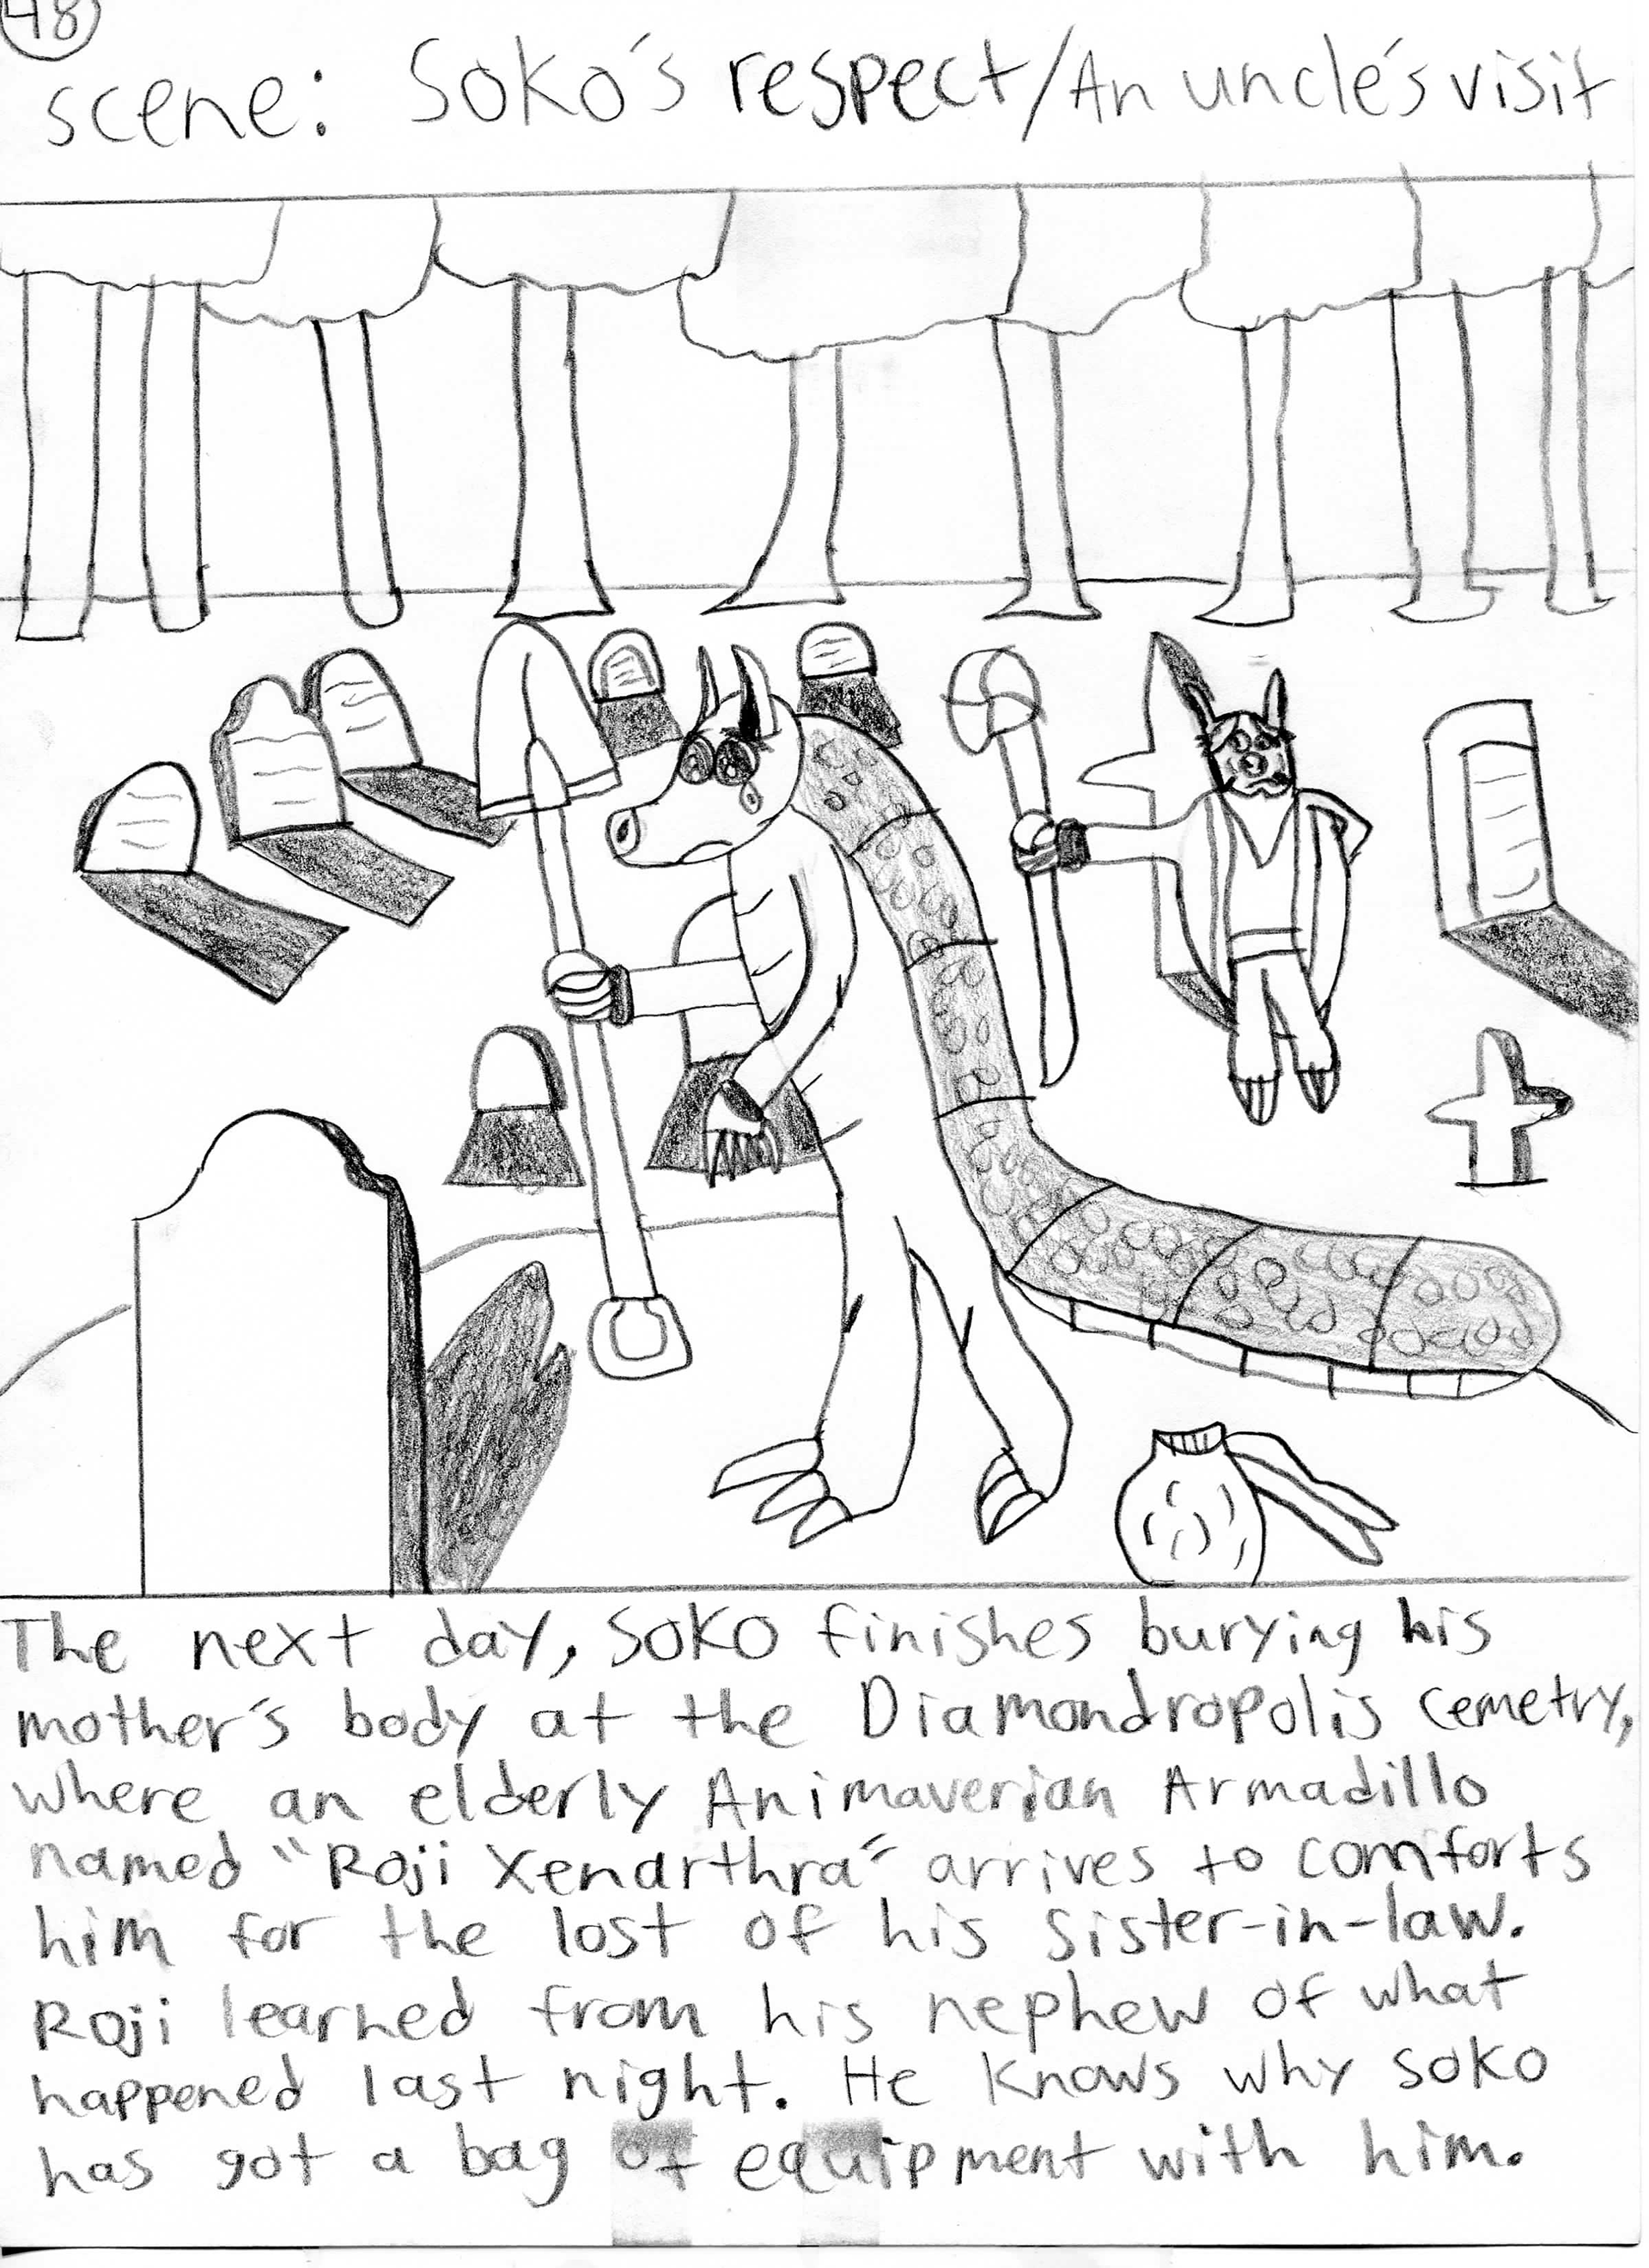 48
scene: Soko's respect/An uncle's visit
The next day, Soko finishes burying his
mother's body at the Diamondropolis cemetry,
where an elderly Animaverian Armadillo
named "Roji Xenarthra" arrives to comforts
him for the lost of his sister-in-law.
Roji learned from his nephew of what
happened last night. He knows why Soko
has got a bag of equipment with him.